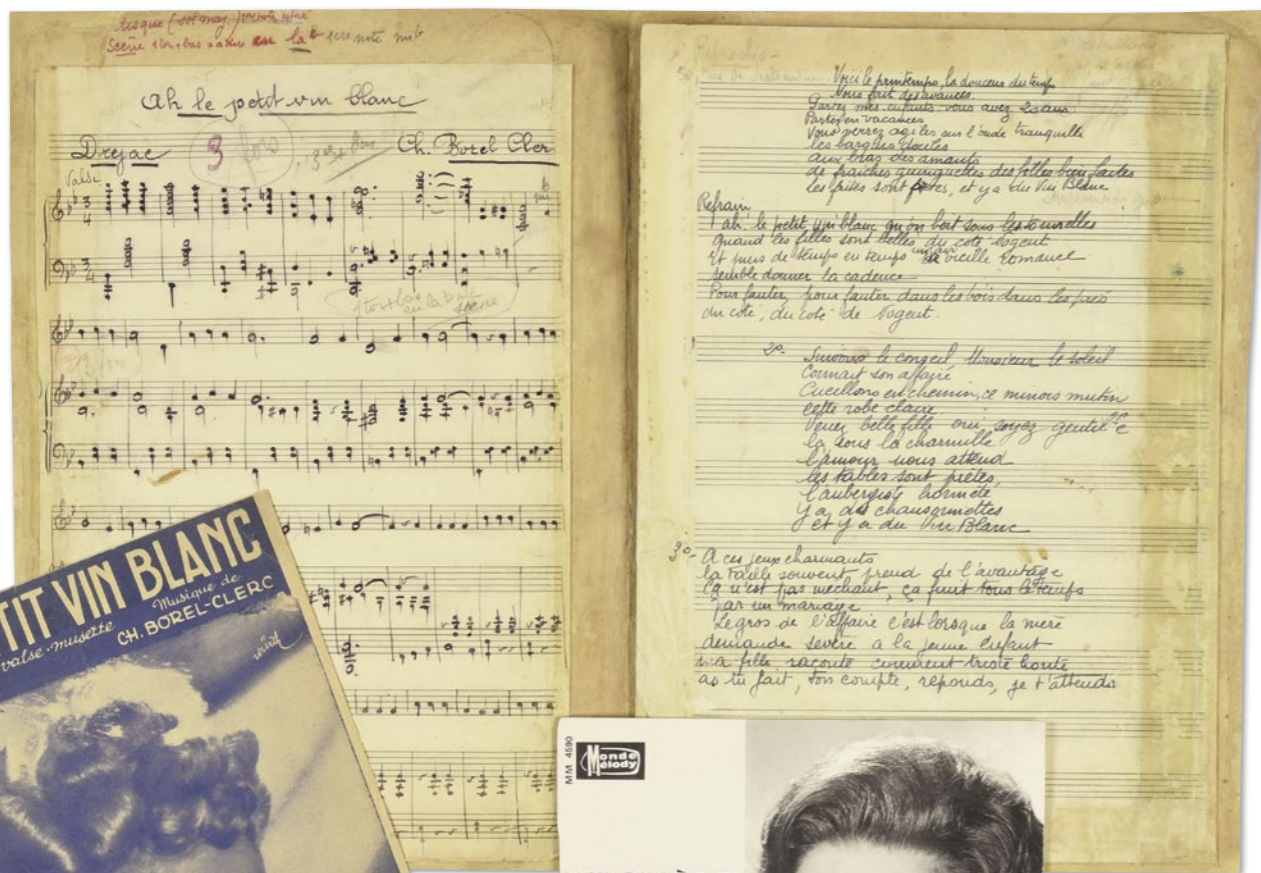 Scène 1 ton + bas en la b 1ère note mi b
Ah le petit vin blanc
Drejac
3
Ch. Borel Cler
Valse
3
4
3
4
1 ton + bas
en la b
scène
TIT VIN BLANC
valse-musette
Musique de
CH. BOREL-CLERC
Voici le printemps, la douceur du temps
Nous fait des avances
Partez mes enfants vous avez 20 ans
Partez en vacances
Vous verrez agiles sur l'onde tranquille
les barques dociles
aux bras des amants
de fraiches guinguettes des filles bien faites
les frites sont prêtes, et y a du Vin Blanc
Refrain
ah, le petit vin blanc qu'on boit sous les tonnelles
quand les filles sont belles du coté Nogent
et puis de temps en temps un air vieille romance
semble donner la cadence
Pour fauter, pour fauter dans les bois dans les prés
du coté, du coté de Nogent.
2o- Suivons le conseil Monsieur le soleil
Connait son affaire
Cueillons en chemin, ce minois mutin
cette robe claire
Venez belle fille oui soyez gentille
la sous la charmille
l'amour nous attend
les tables sont prêtes
l'aubergiste honnête
y a des chansonnettes
et y a du Vin Blanc
3o- A ces jeux charmants
la taille souvent prend de l'avantage
Ça n'est pas méchant, ça finit tous le temps
par un mariage
Le gros de l'affaire c'est lorsque la mère
demande sévère a la jeune enfant
ma fille raconte comment triste honte
as tu fait, ton compte, réponds, je t'attends
MM 4590
Monde
Mélody